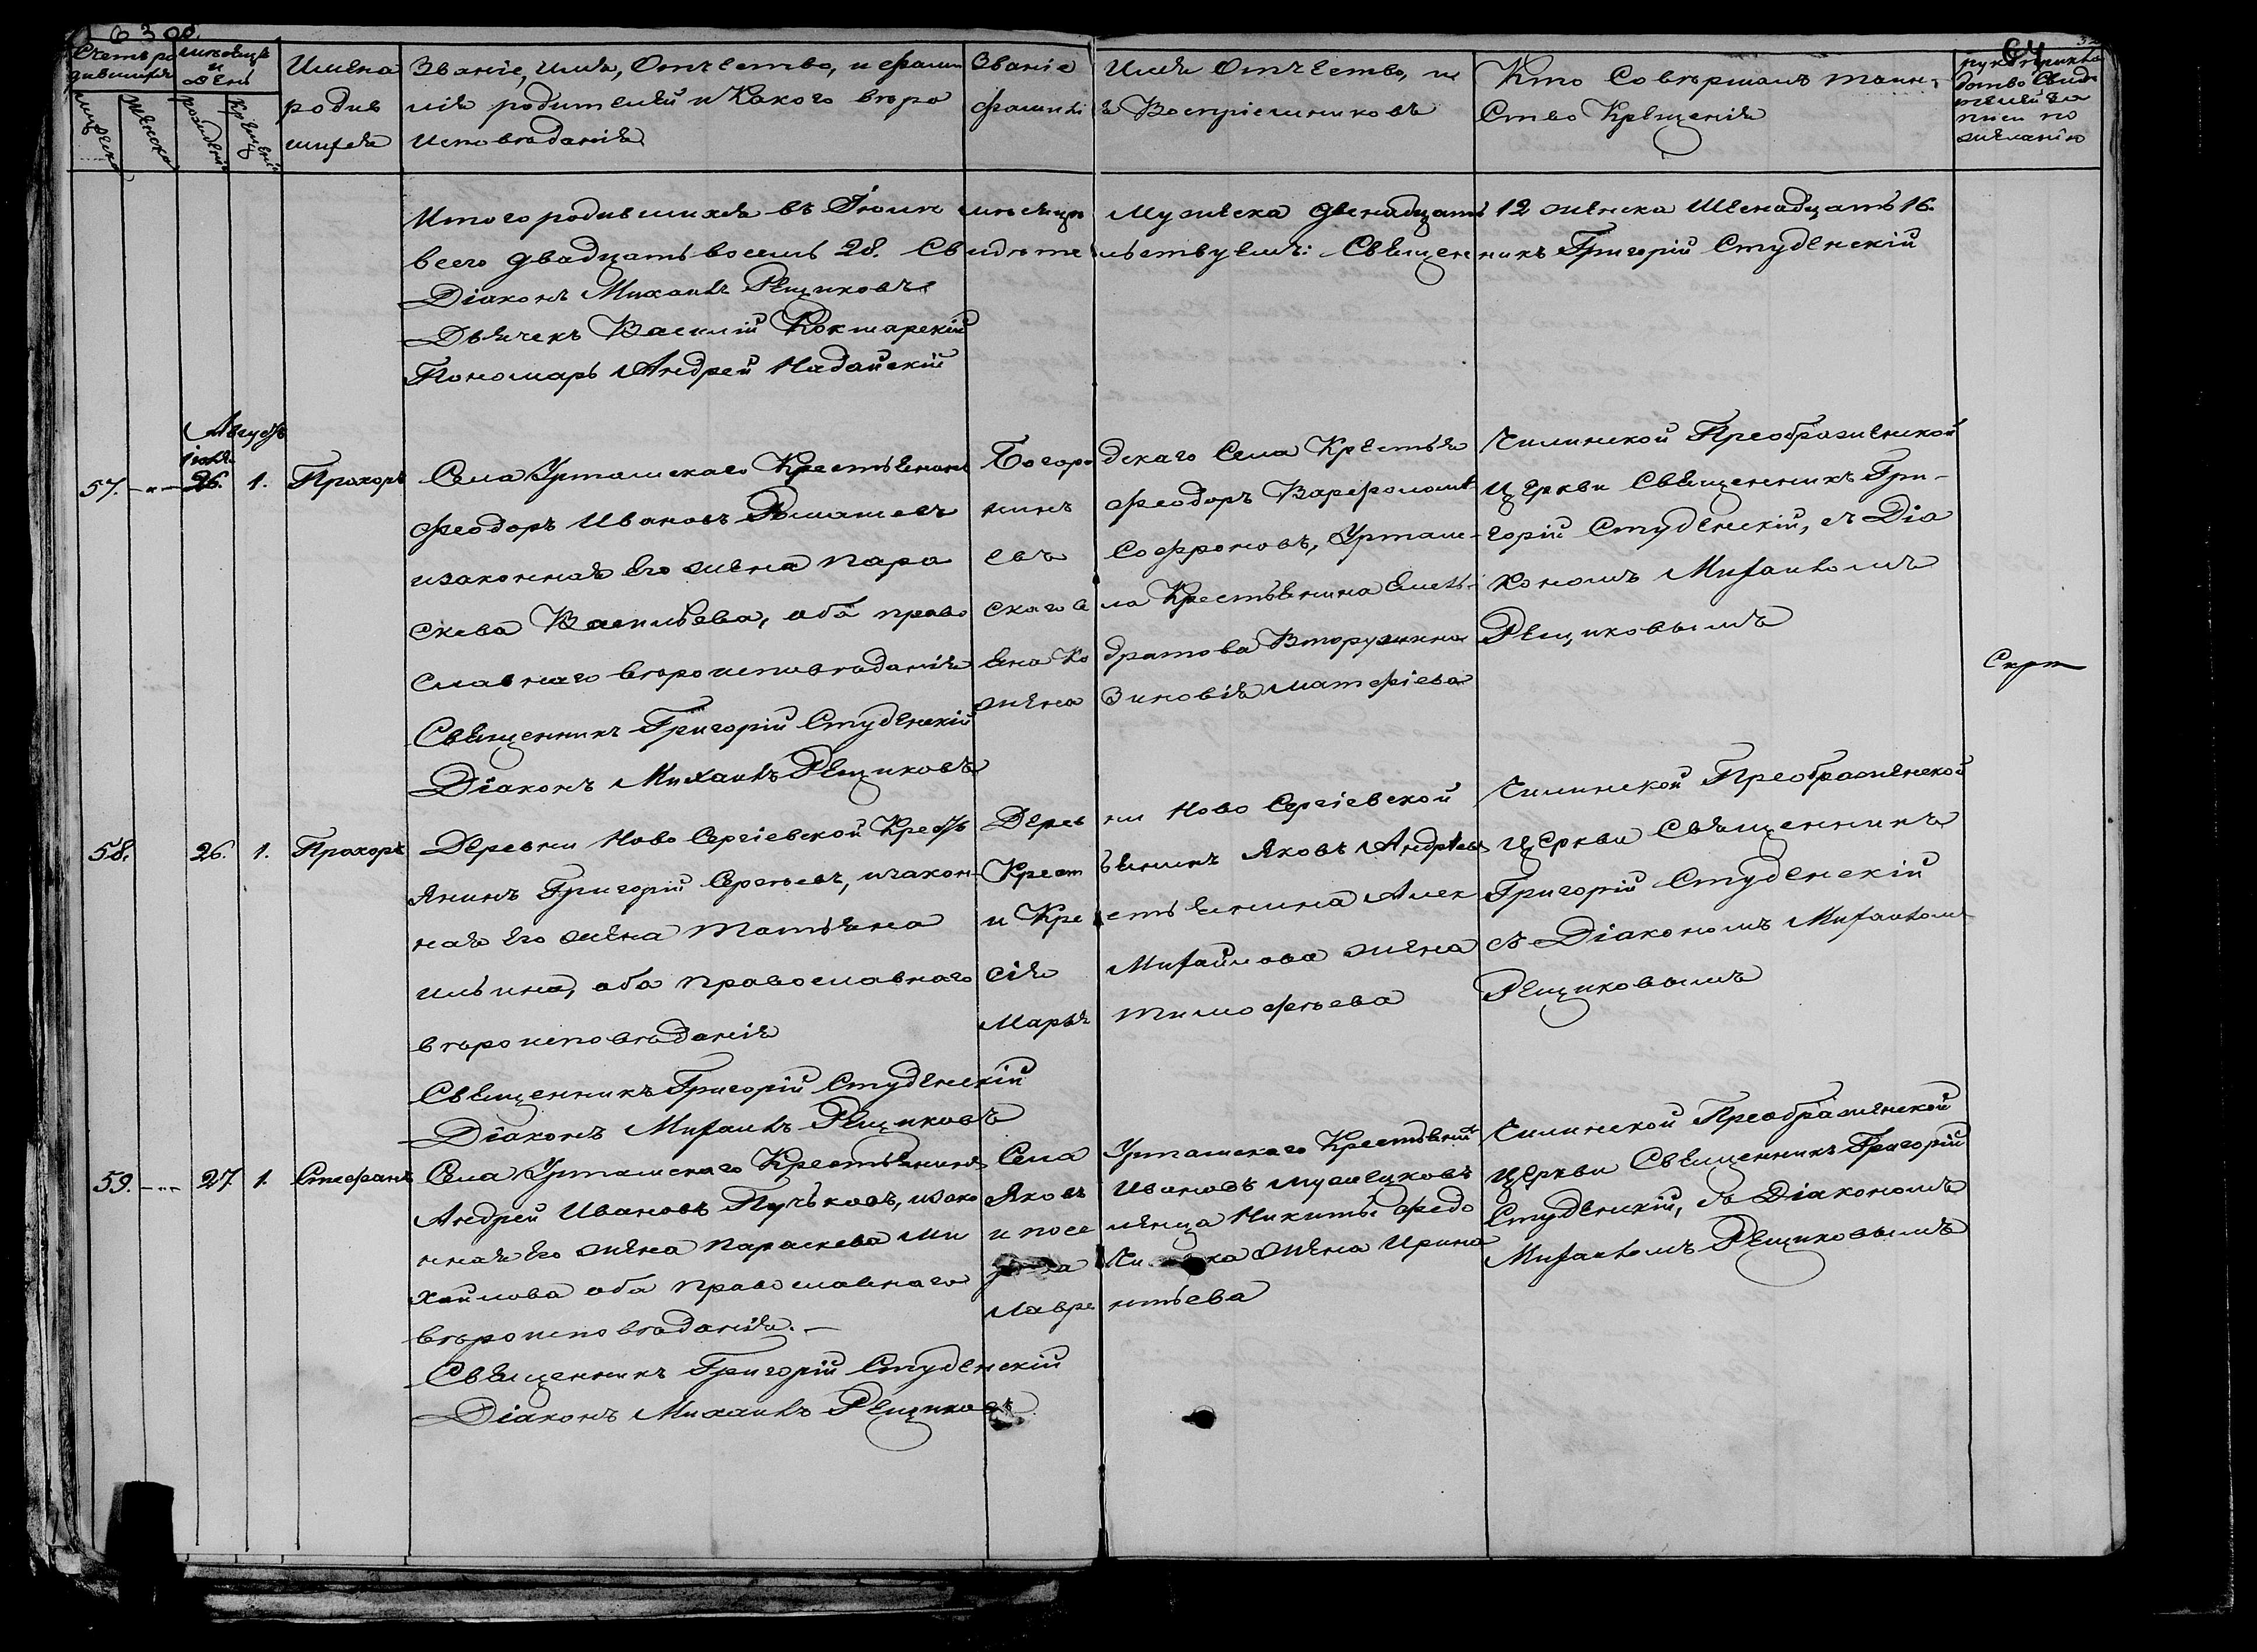 63 об.
64
Счетъ ро
дившихся
мужеска
женска
мѣсяцъ
и
день
рожденія
крещенія
Имена
родив
шихся
Званіе, имя, Отчество, и фами
лія родителей и Какого вѣро
исповѣданія
Званіе Имя Отчество, и
фамилія Воспріемниковъ
Кто Совершалъ таин-
Ство Крещенія
рукоприкла
дство Свидѣ
телей за
писи по
желанію
Итого родившихся въ Іюлѣ мѣсяцѣ Мужеска двенадцать 12 женска Шенадцать 16.
всего двадцать восемь 28. Свидѣтельствуемъ: Священникъ Григорій Студенскій
Діаконъ Михаилъ Рещиковъ
Дьячекъ Василій Кокшарскій
Пономарь Андрей Надайскій
Августъ
57.
іюля
26.
1.
Прохоръ
Села Урташскаго Крестьянинъ
Феодоръ Ивановъ Ромашевъ
изаконная Его жена Пара
скева Васильева, оба право
славнаго вѣроисповѣданія
Священникъ Григорій Студенскій
Діаконъ Михаилъ Рещиковъ
Богородскаго Села Крестья
нинъ Феодоръ Варфоломѣ
евъ Софроновъ, Урташ-
скаго села Крестьянина Емель-
яна Кодратова Вторушина
жена Зиновія матфіева
Чилинской Преображенской
Церкви Священникъ Гри-
горій Студенскій, съ Діа
кономъ Михаиломъ
Рещиковымъ
Скрп
58.
26.
1.
Прохоръ
Деревни Ново Сергіевской Крестъ
янинъ Григорій Сергѣевъ, изакон-
ная Его жена Татьяна
ильина, оба православнаго
вѣроисповѣданія
Священникъ Григорій Студенскій
Діаконъ Михаилъ Рещиковъ
Деревни Ново Сергіевской
Крестьянинъ Яковъ Андрѣевъ
и Крестьянина Алек
сія Михайлова жена
Марья тимофѣева
Чилинской Преображенской
Церкви Священникъ
Григорій Студенскій
съ Діакономъ Михаиломъ
Рещиковымъ
59.
27.
1.
Стефанъ
Села Урташскаго Крестьянинъ
Андрей Ивановъ Пучковъ, изако
нная Его жена параскева Ми
хайлова оба православнаго
вѣроисповѣданія.
Священникъ Григорій Студенскій
Діаконъ Михаилъ Рещиковъ
Села Урташскаго Крестьянинъ
Яковъ Ивановъ
и поселенца Никиты Федо
жена Ирина
Лаврентьева
Чилинской Преображенской
Церкви Священникъ Григорій
Студенскій, съ Діакономъ
Михаиломъ Рещиковымъ